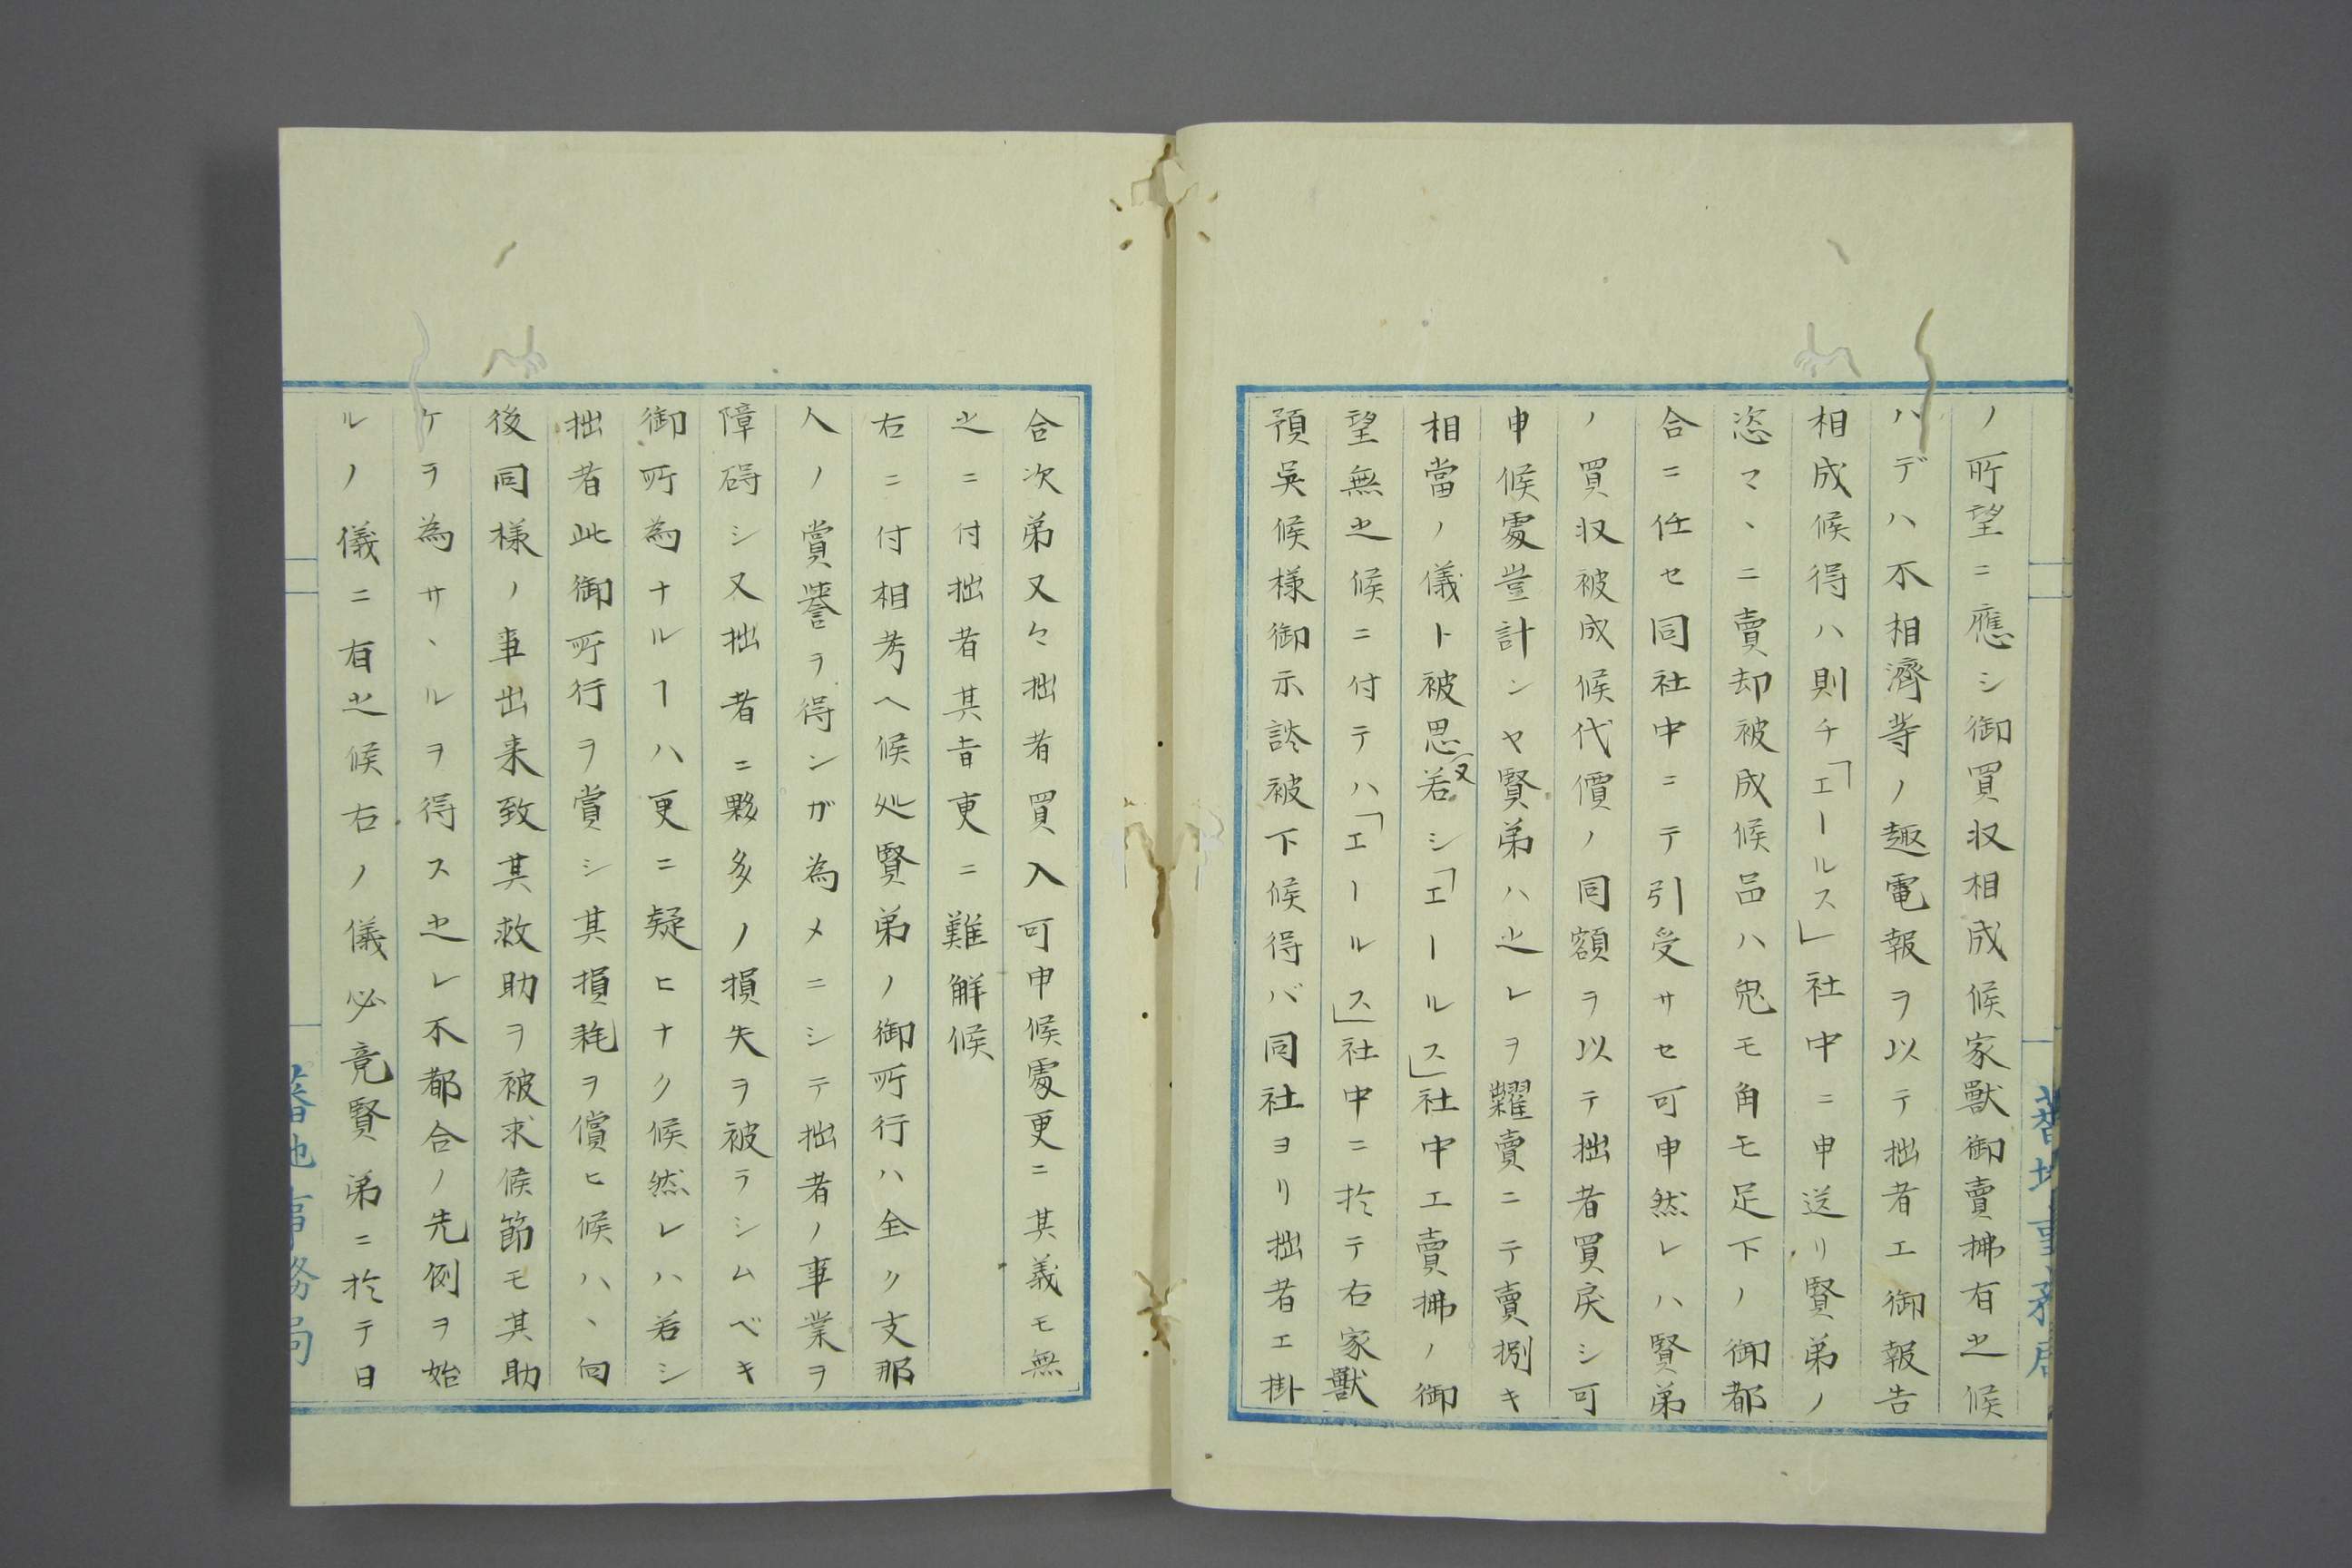 ノ所望ニ應シ御買収相成候家獸御賣拂有之候
ハデハ不相濟等ノ趣電報ヲ以テ拙者エ御報告
相成候得ハ則チ「エールス」社中ニ申送リ賢弟ノ
恣マヽニ賣却被成候呂ハ兎モ角モ足下ノ御都
合ニ任セ同社中ニテ引受サセ可申然レハ賢弟
ノ買収被成候代價ノ同額ヲ以テ拙者買戻シ可
申候處豈計ンヤ賢弟ハ之レヲ糶賣ニテ賣捌キ
相當ノ儀ト被思又若シ「エールス」社中エ賣拂ノ御
望無之候ニ付テハ「エールス」社中ニ於テ右家獸
預吳候様御示談被下候得バ同社ヨリ拙者エ掛
合次弟又々拙者買入可申候處更ニ其義モ無
之ニ付拙者其旨更ニ難解候
右ニ付相考ヘ候処賢弟ノ御所行ハ全ク支那
人ノ賞譽ラ得ンガ為メニシテ拙者ノ事業ヲ
障碍シ又拙者ニ夥多ノ損失ヲ被ラシムベキ
御所為ナルヿハ更ニ疑ヒナク候然レハ若シ
拙者此御所行ヲ賞シ其損耗ヲ償ヒ候ハヽ向
後同様ノ事出来致其救助ヲ被求候節モ其助
ケラ為サヽルヲ得ス之レ不都合ノ先例ヲ始
ルノ儀ニ有之候右ノ儀必竟賢弟ニ於テ日
蕃地事務局
蕃地事務局